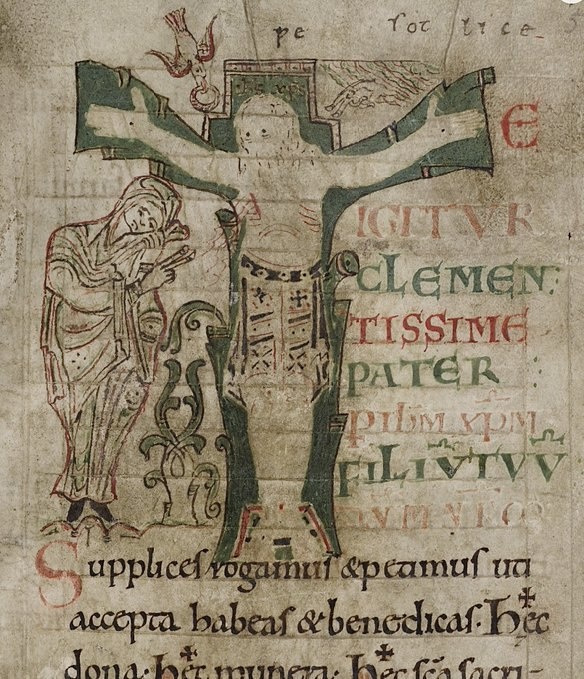 pe rot lice
IHS XPS
E
IGITVR
CLEMEN
TISSIME
PATER
PIhM XPM
FILIV TVV
Supplices rogamus & petimus uti
accepta habeas & benedicas. Hęc
dona. Hęc munera. Hęc scā sacri-